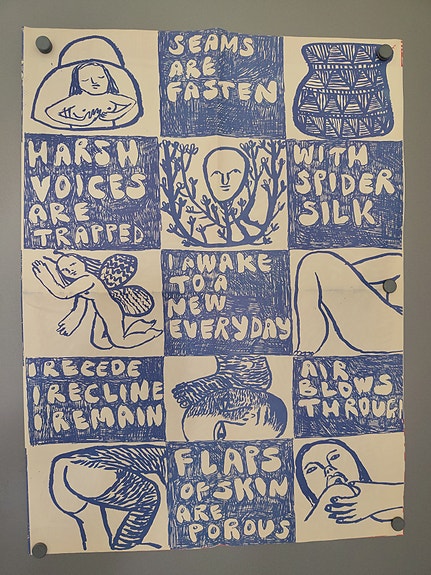 SEAMS
ARE
FASTEN
HARSH
VOICES
ARE
TRAPPED
WITH
SPIDER
SILK
I AWAKE
TO A
NEW
EVERYDAY
I RECEDE
I RECLINE
I REMAIN
AIR
BLOWS
THROUGH
FLAPS
OF SKIN
ARE
POROUS